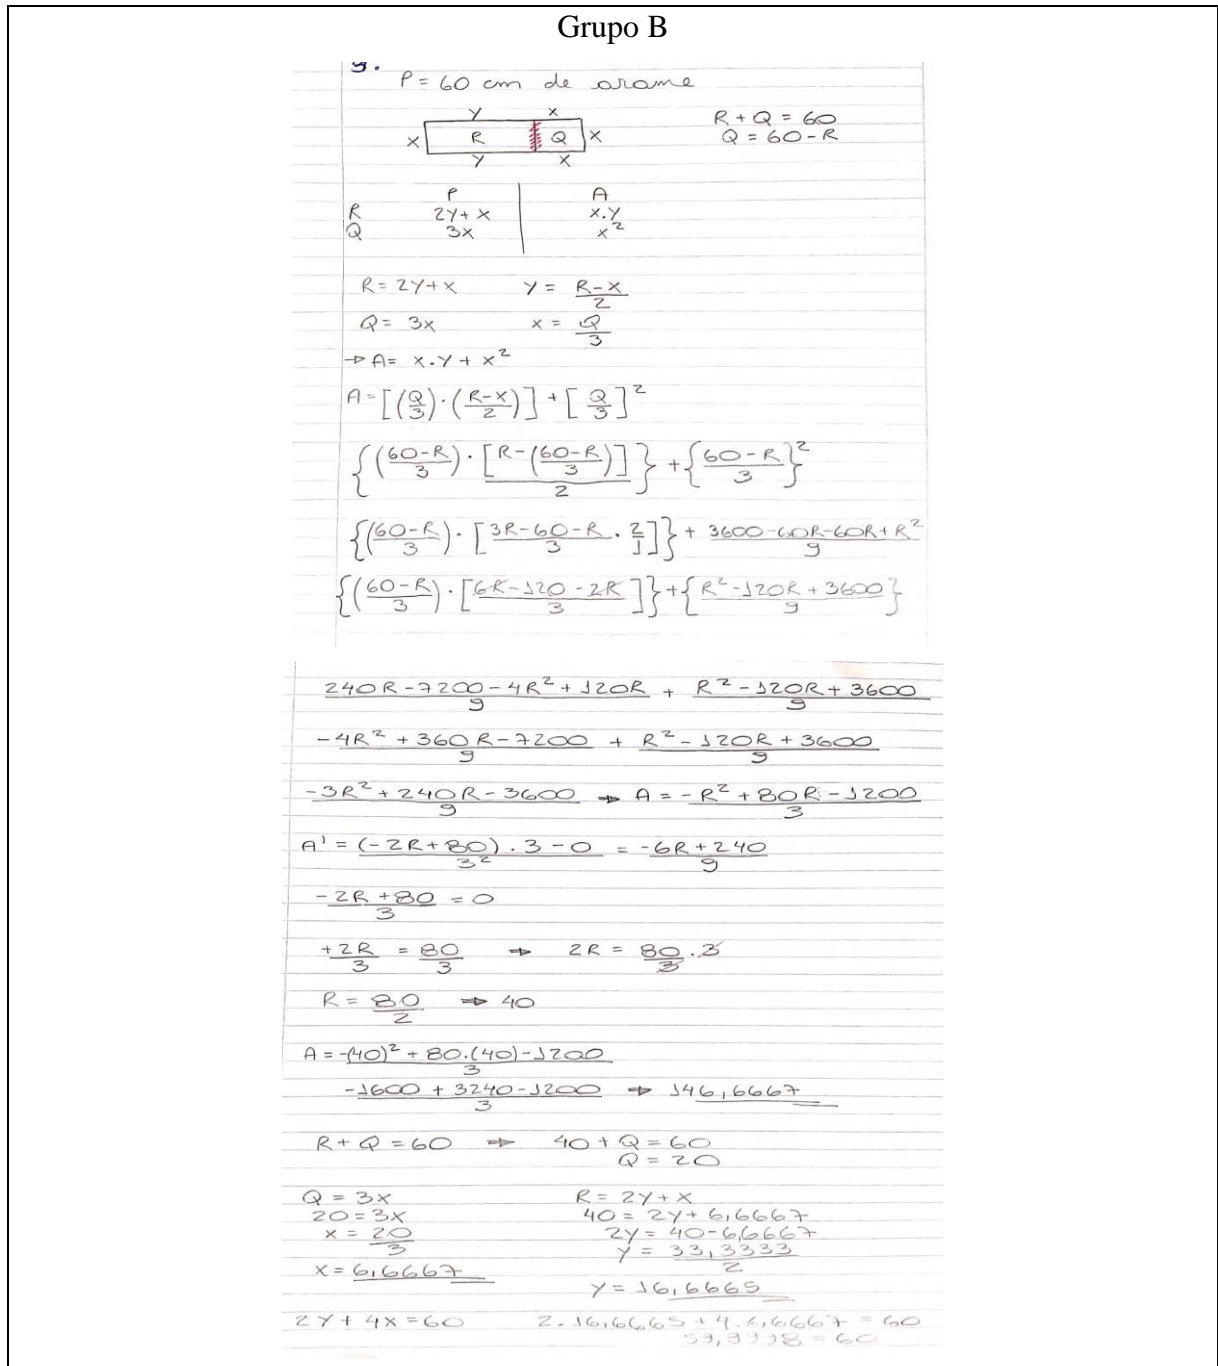 Grupo B
9.
P = 60 cm de arame
y x
x R Q x
y x
R + Q = 60
Q = 60 - R
P A
R 2y + x x.y
Q 3x x²
R = 2y + x y = (R - x)/2
Q = 3x x = Q/3
→ A = x.y + x²
A = [(Q/3) · ((R - x)/2)] + [Q/3]²
{((60-R)/3) · [R - ((60-R)/3)]/2} + {(60-R)/3}²
{((60-R)/3) · [(3R - 60 - R)/3 · 2/1]} + (3600 - 60R - 60R + R²)/9
{((60-R)/3) · [(6R - 120 - 2R)/3]} + {(R² - 120R + 3600)/9}
(240R - 7200 - 4R² + 120R)/9 + (R² - 120R + 3600)/9
(-4R² + 360R - 7200)/9 + (R² - 120R + 3600)/9
(-3R² + 240R - 3600)/9 → A = (-R² + 80R - 1200)/3
A' = ((-2R + 80) . 3 - 0)/3² = (-6R + 240)/9
(-2R + 80)/3 = 0
+2R/3 = 80/3 → 2R = 80/3 . 3
R = 80/2 → 40
A = (-(40)² + 80.(40) - 1200)/3
(-1600 + 3240 - 1200)/3 → 146,6667
R + Q = 60 → 40 + Q = 60
Q = 20
Q = 3x R = 2y + x
20 = 3x 40 = 2y + 6,6667
x = 20/3 2y = 40 - 6,6667
x = 6,6667 y = 33,3333/2
y = 16,6665
2y + 4x = 60 2. 16,6665 + 4. 6,6667 = 60
59,9998 = 60